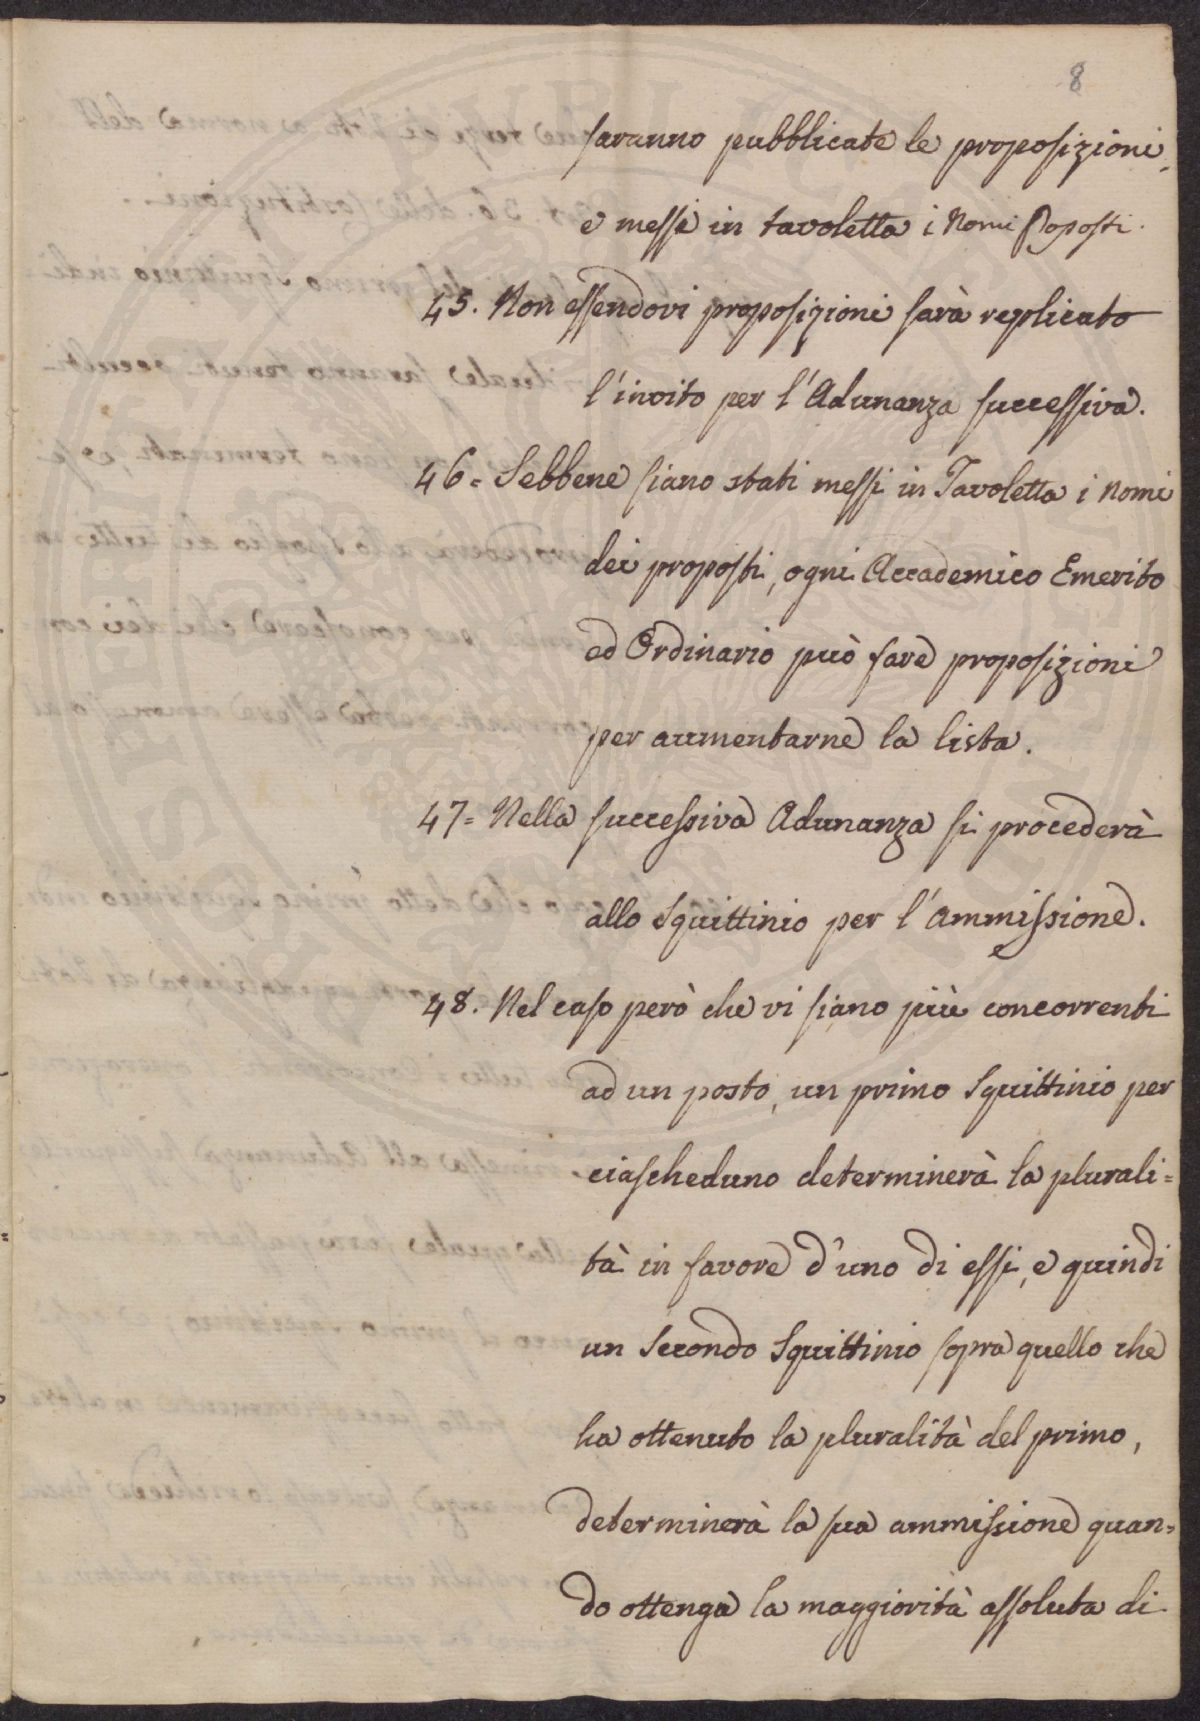 8
saranno pubblicate le proposizioni,
e messi in tavoletta i Nomi Proposti.
45. Non essendovi proposizioni sarà replicato
l'invito per l'Adunanza successiva.
46= Sebbene siano stati messi in Tavoletta i Nomi
dei proposti, ogni Accademico Emerito
ed Ordinario può fare proposizioni
per aumentarne la lista.
47= Nella successiva Adunanza si procederà
allo Squittinio per l'ammissione.
48. Nel caso però che vi siano più concorrenti
ad un posto, un primo Squittinio per
ciascheduno determinerà la plurali=
tà in favore d'uno di essi, e quindi
un Secondo Squittinio sopra quello che
ha ottenuto la pluralità del primo,
determinerà la sua ammissione quan=
do ottenga la maggiorità assoluta di